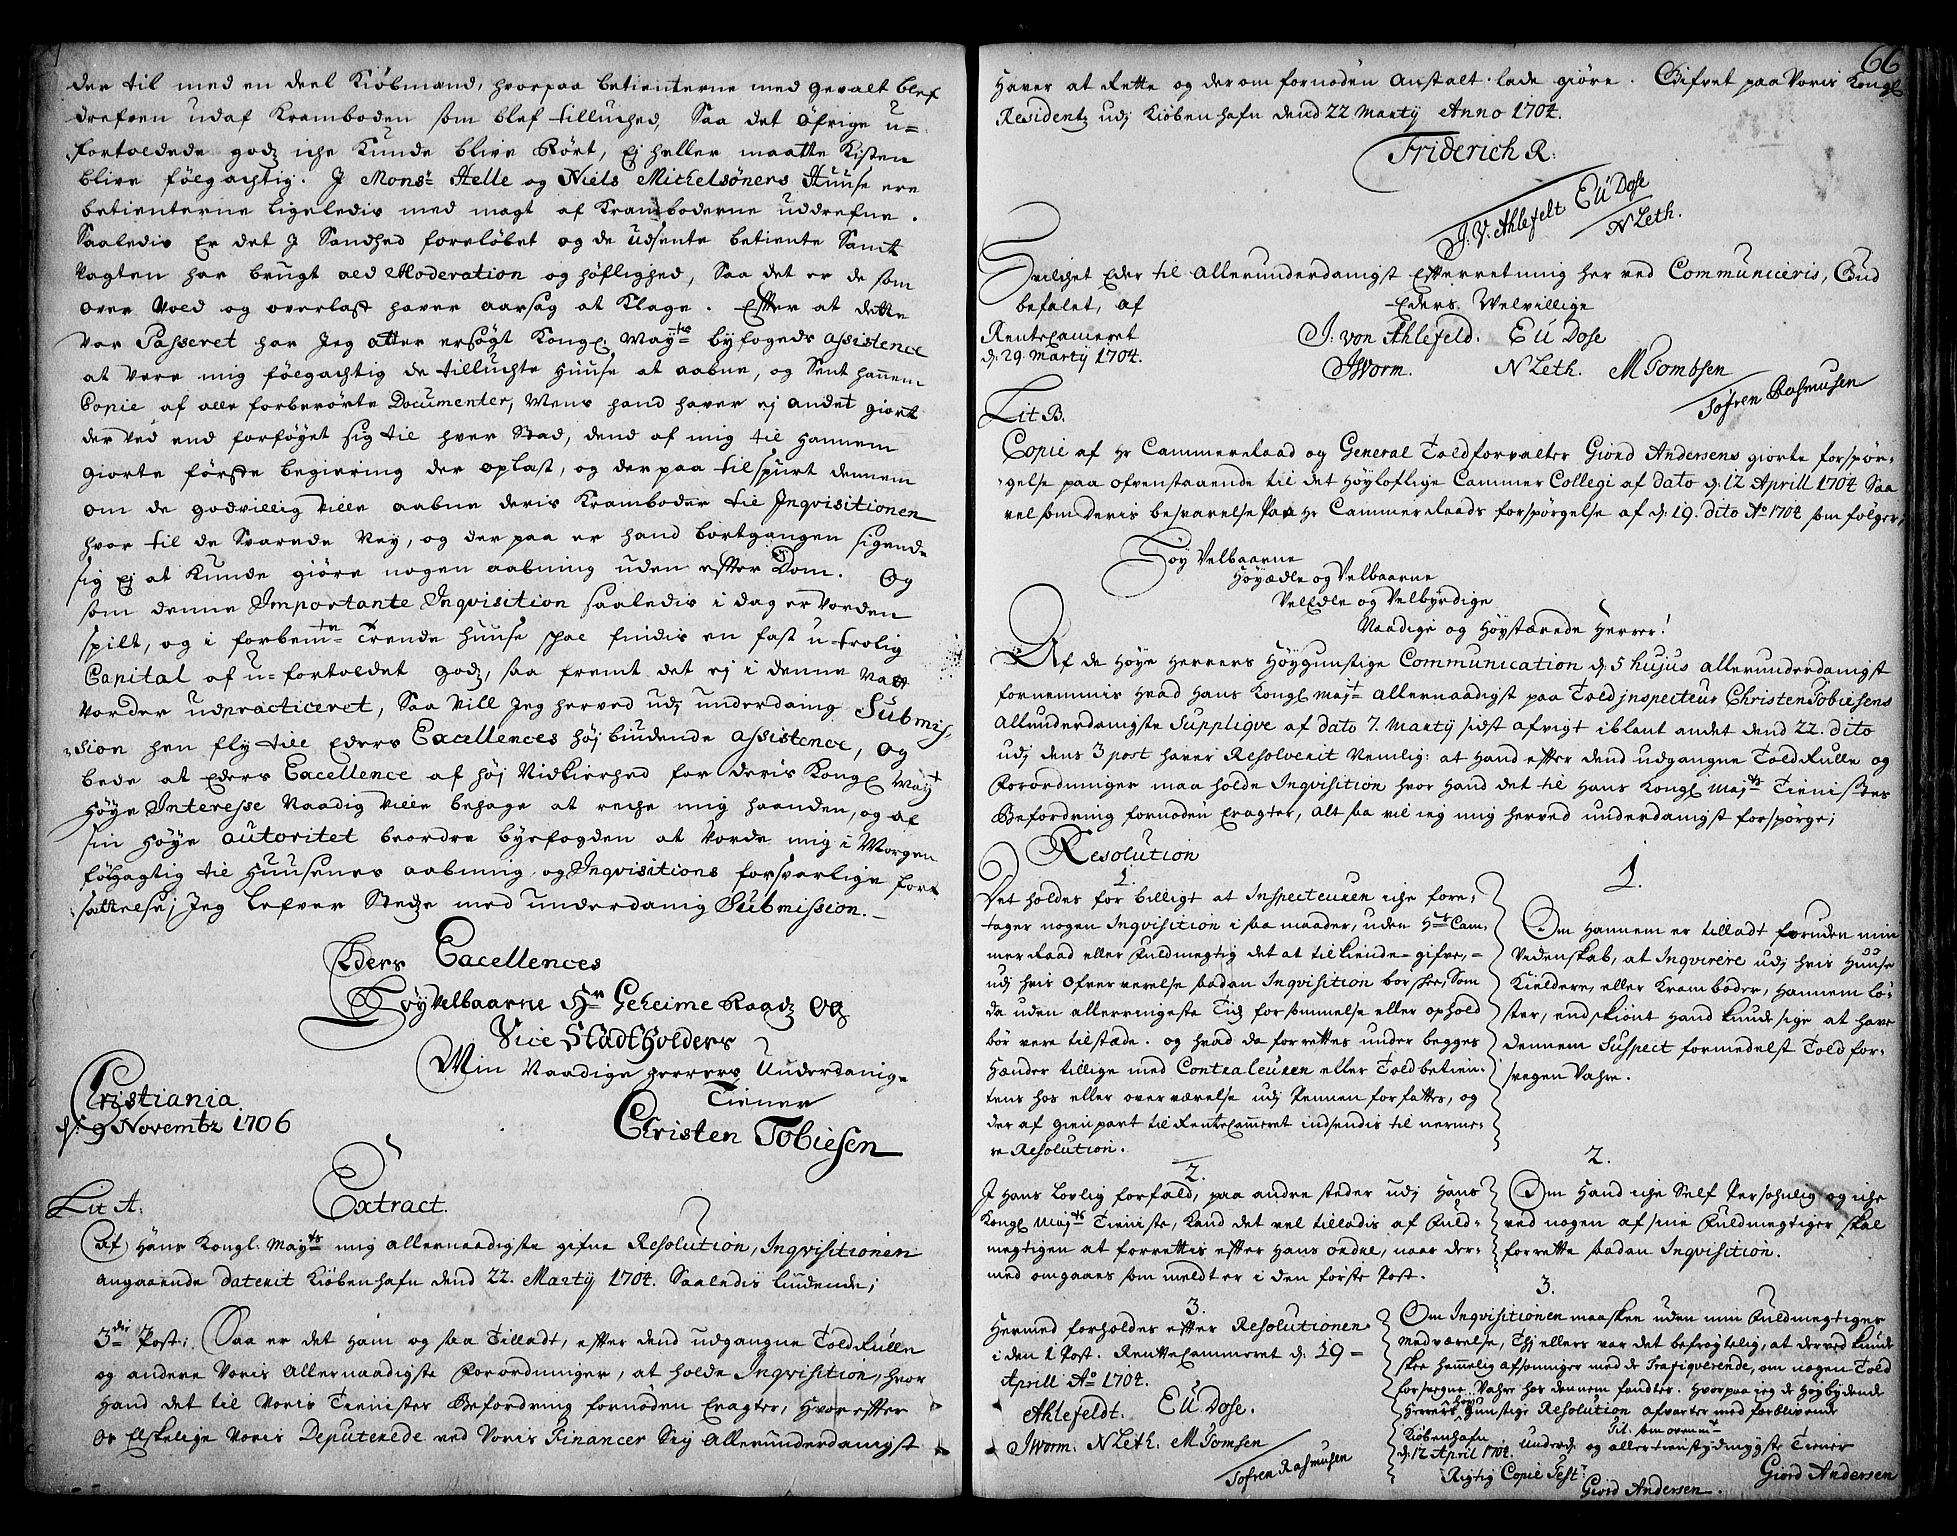 der til med en deel Kiöbmænd, hvorpaa betienterne med gevalt blef
drefven udaf Kramboden som blef tilluched, Saa det öfrige u-
fortoldede godz iche Kunde blive Rört, Ej heller maatte Kisten
blive fölgachtig. J Monsr Helle og Niels Michelsöners Huuse ere
betienterne ligeledis med magt af Kramboderne uddrefne.
Saaledis Er det J Sandhed foreløbet og de Udsente betiente Samt
Vagten har brugt ald Moderation og höflighed, Saa det er de som
over Vold og overlast haver aarsag at Klage. Effter at dette
Var Passeret har Jeg atter ersögt Kongl: Mayts byfogeds assistence
at Vere mig fölgachtig de tilluchte Huuse at aabne, og Sent hannem
Copie af alle forberörte Documenter, Mens hand haver ej andet giort
der Ved end forföyet sig til hver Stad, dend af mig til Hannem
giorte förste begiering der oplæst, og derpaa tilspurt dennem
om de godvillig Ville aabne deris Kramboder til Inqvisitionen
hvor til de Svarede Ney, og der paa er hand bortgangen sigend-
sig Ej at Kunde giöre nogen aabning uden effter Dom. Og
som denne Importante Inqvisition saaledis i dag er Vorden
spilt, og i forbemte Trende Huuse skal findis en fast u-trolig
Capital af u-fortoldet godz, saa fremt det ej i denne Natt
Vorder udpracticeret, Saa Vill Jeg herved udj underdanig Submis,
sion hen fly till Eders Excellences höj biudende assistence, og
bede at Eders Excellence af höj Nidkierhed for deris Kongl Mayt
Höye Interesse Naadig Ville behage at reche mig haanden, og af
sin Höye autoritet beordre byefogden at Vorde mig i Morgen
fölgagtig til Huusenes aabning og Inqvisitions forsvarlige fort
sættelse; Jeg lefver Stedze med underdanig Submission.
Eders Excellences
Höy Velbaarne Hr Geheime Raadz og
Vice Stadtholders
Min Naadige Herrers Underdanige
Tiener
Christiania
d: 9 Novembr 1706
Christen Tobiesen
Lit A:
Extract.
Af Hans Kongl: Mayts mig allernaadigste gifne Resolution, Inqvisitionen
angaaende daterit Kiöbenhafn dend 22. Martij 1704. Saaledis liudende;
3die Post: Saa er det Ham og saa Tilladt, effter dend udgangne Told Rulle
og andere Voris Allernaadigste Forordninger, at holde Inqvisition, hvor
Hand det til Voris Tienistes Befordring fornöden Eragter, Hvoreffter
Os Elskelige Voris Deputerede ved Voris Financer Sig Allerunderdanigst
66
Haver at Rette og derom fornöden Anstalt lade giöre. Gifvet paa Voris Kongl
Residentz udj Kiöbenhafn dend 22 Martij Anno 1704.
Friderich R:
J. V. Ahlefelt E U Dose
N Leth.
Hvilchet Eder til Allerunderdanigst Efterretning her ved Communiceris, Gud
befalet, af
Eders Velvillige
Rentecameret
d: 29. Martij 1704.
J: von Ahlefeld. E U Dose
JWorm. N Leth. M Tombsen
Sofren Rasmusen
Lit B.
Copie af Hr Cammerraad og General Toldforvalter Giord Andersens giorte forspör-
gelse paa ofvenstaaende til det Höyloflige Cammer Collegi af dato d: 12 Aprill 1704 Saa
vel som deris besvarelse Paa Hr Cammerraads forspörgelse af d: 19. dito Ao 1704 som fölger,
Höy Velbaarne
Höyædle og Velbaarne
VelEdle og Velbyrdige
Naadige og Höystærede Herrer!
Af de Höye Herrers Höygunstige Communication d: 5 hujus allerunderdanigst
fornemmis hvad Hans Kongl Majt allernaadigst paa Told Jnspecteur Christen Tobiesens
allunderdanigste Suppliqve af dato 7. Martij sidst afvigt iblant andet dend 22. dito
udj dens 3 post haver Resolverit Nemlig: at Hand effter dend udgangne Told Rulle og
Forordninger maa holde Inqvisition hvor Hand det til Hans Kongl Majts Tienistes
Befordring fornöden Eragter, Alt saa vil ieg mig herved underdanigst forspörge;
Resolution
1.
Det holdes for billigt at Inspecteuren iche fore-
tager nogen Inqvisition i saa maader, uden Hr Cam-
merraad eller Fuldmegtig det at tilkiende-gifve,
udj hvis Ofververelse saadan Inqvisition bör skee, Som
da uden allerringeste Tidz forsömmelse eller ophold
bör vere tilstæde. og hvad da forrettes under begges
Hænder tillige med Contraleuren eller Toldbetien-
tens hos eller overværelse udj Pennen forfattes, og
der af gienpart til Rentecammeret indsendis til nerme-
re Resolution.
1.
Om Hannem er tilladt foruden min
Videnskab, at Inqvirere udj hvis Huuse
Kieldere, eller Kramboder, Hannem lö-
ster, endskiönt Hand kunde sige at have
dennem Suspect formedelst Told for-
svegen Vahre.
2.
J Hans Lovlig forfald, paa andre steder udj Hans
Kongl Majts Tieniste, Kand det vel tilladis af Fuld-
megtigen at forrettis effter Hans ordre, naar der-
med omgaaes som meldt er i den förste Post.
2.
Om Hand iche Self Persohnlig og iche
ved nogen af sine Fuldmegtiger skal
forrette saadan Inqvisition.
3.
Hermed forholdes effter Resolutionen
i den 1 Post. Rentte Cammeret d: 19-
Aprill Ao 1704.
Ahlefeldt. E U Dose.
JWorm. N Leth. M Tomsen
Sofren Rasmusen
3.
Om Inqvisitionen maa skee uden min Fuldmegtiges
Nedværelse, Thj ellers var det befröytelig, at derved kunde
skee hemmelig afspninger med de Trafiqverende, om nogen Told
forsvegne Vahre hos dennem fandtes. Hvorpaa jeg de Höybydende
Herrers Höy Gunstige Resolution afvarter med forblivende
Tit: som ovenmt
Kiöbenhafn
d: 12 April 1704. Underd: og allertienstpligtigste Tiener
Giord Andersen
Rigtig Copie Test:
Giord Andersen.